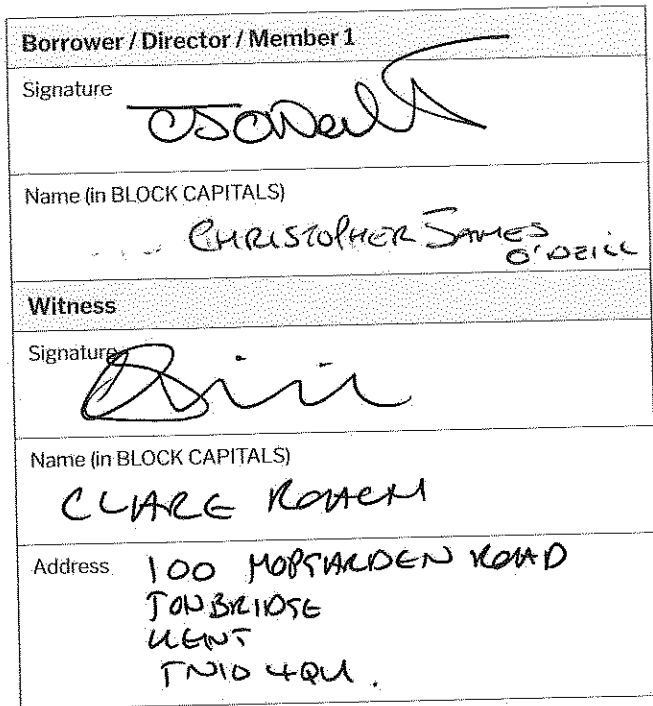 Borrower / Director / Member 1
Signature
CJONeill
Name (in BLOCK CAPITALS)
CHRISTOPHER JAMES
O'NEILL
Witness
Signature
Name (in BLOCK CAPITALS)
CLARE ROACH
Address
100 HOPGARDEN ROAD
TONBRIDGE
KENT
TN10 4QU.